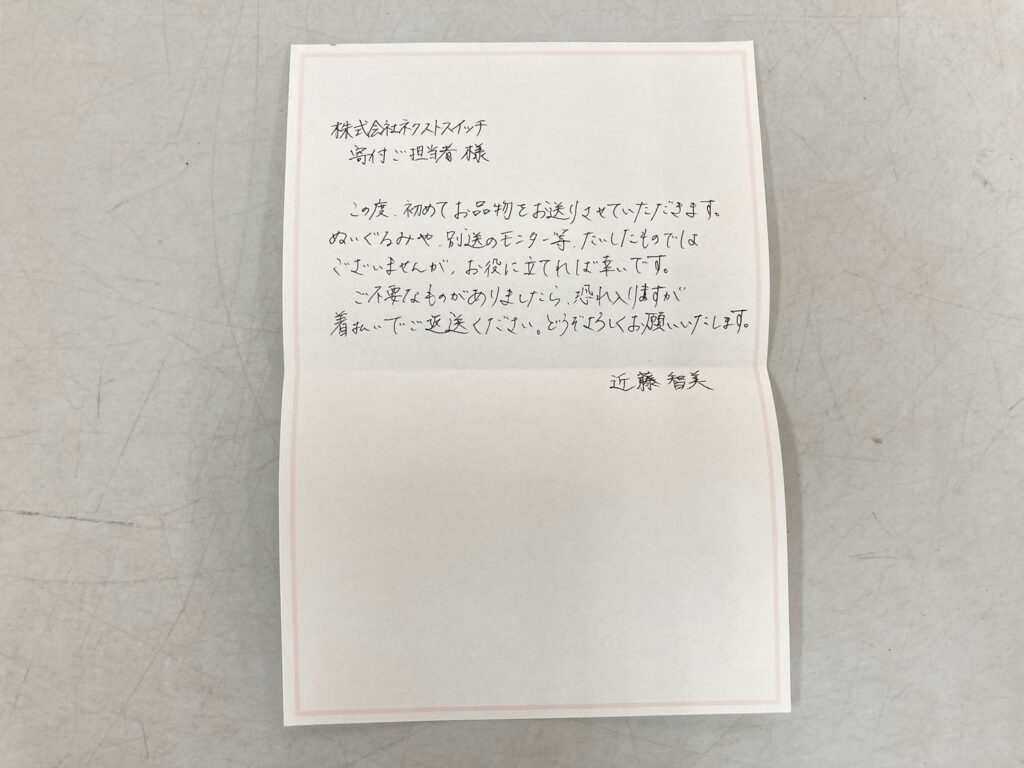 株式会社ネクストスイッチ
寄付ご担当者様
この度、初めてお品物をお送りさせていただきます。
ぬいぐるみや、別送のモニター等、たいしたものでは
ございませんが、お役に立てれば幸いです。
ご不要なものがありましたら、恐れ入りますが
着払いでご返送ください。どうぞよろしくお願いいたします。
近藤智美